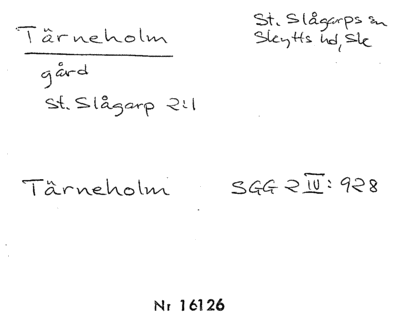 Tärneholm
St. Slågarps sn
Skytts hd, Sk
gård
St. Slågarp 2:1
Tärneholm SGG 2 IV: 928
Nr 16126